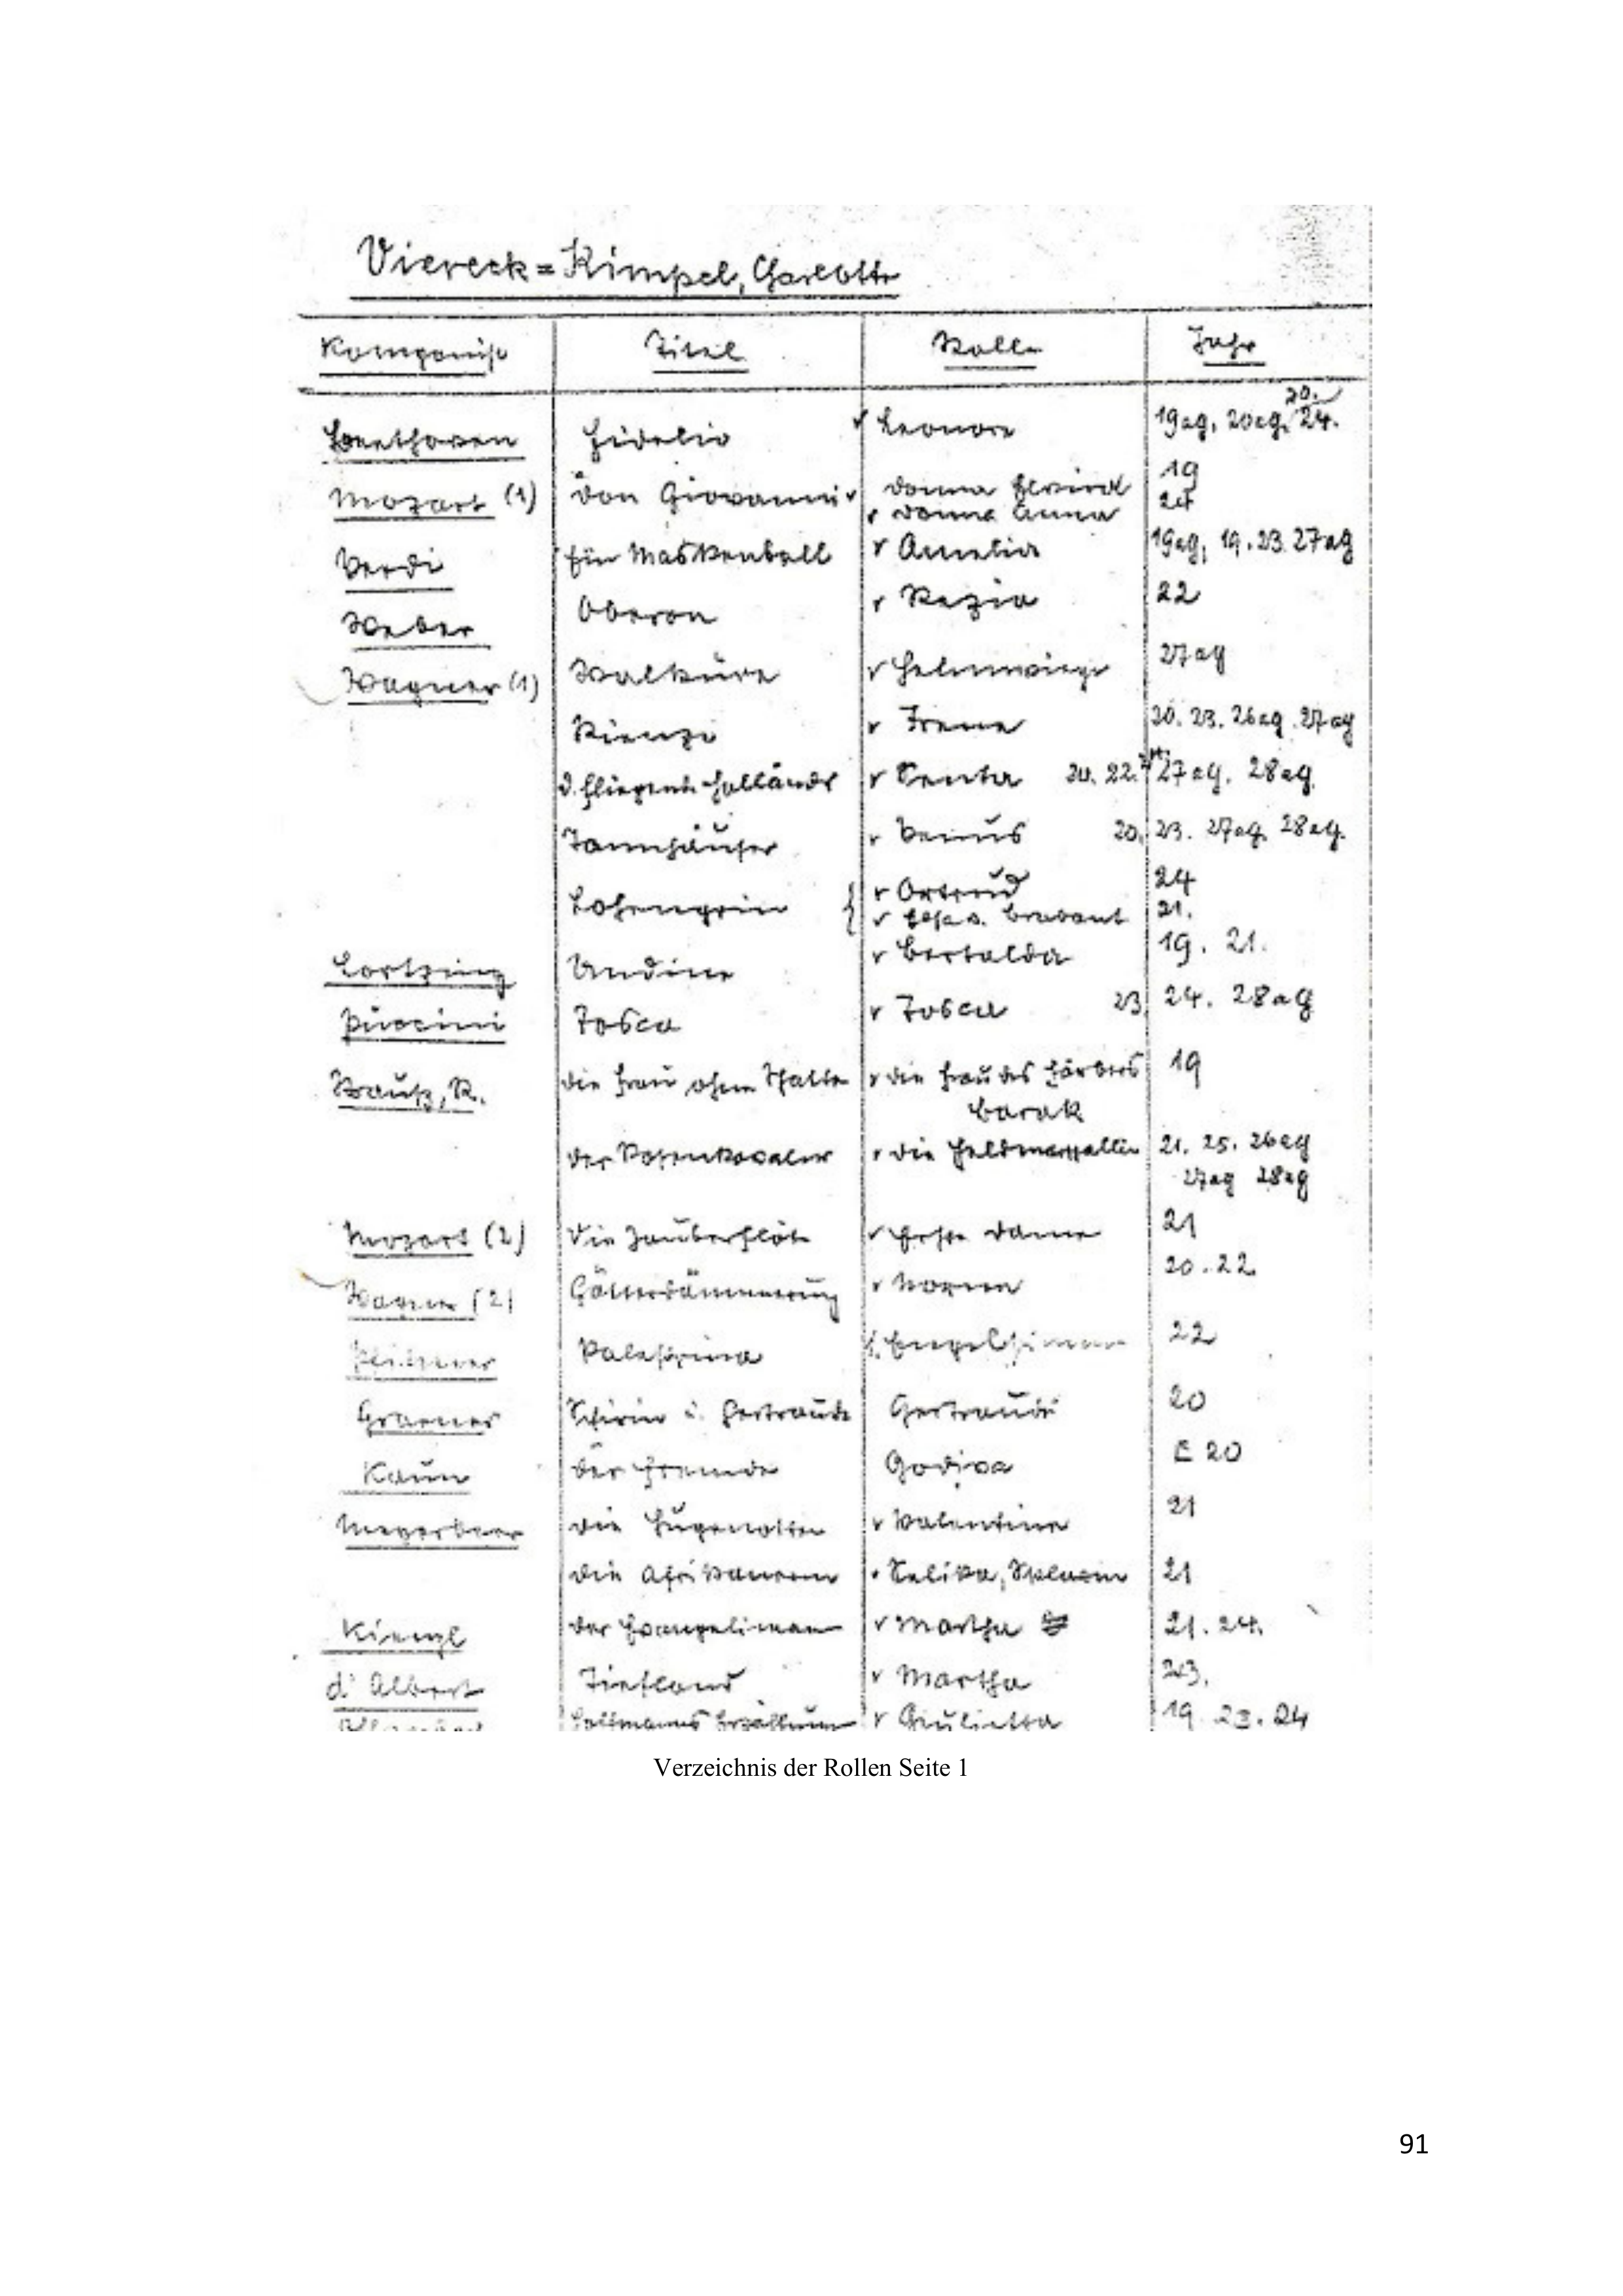 Viereck=Kimpel, Charlotte
Komponist Titel Rolle Jahr
20.
Beethoven Fidelio Leonore 19ag, 20ag, 24.
Mozart (1) Don Giovanni Donna Elvira 19
Donna Anna 24
Verdi Ein Maskenball Amelia 19ag, 19. 23. 27ag
Weber Oberon Rezia 22
Wagner (1) Walküre Helmwige 27ag
Rienzi Irene 20. 23. 26ag. 27ag
d. fliegende Holländer Senta 20. 22. 27ag. 28ag.
Tannhäuser Venus 20. 23. 27ag. 28ag.
Lohengrin Ortrud 24
Elsa v. Brabant 21.
Lortzing Undine Bertalda 19. 21.
Puccini Tosca Tosca 23. 24. 28ag
Strauß, R. die Frau ohne Schatten die Frau des Färbers 19
Barak
der Rosenkavalier die Feldmarschallin 21. 25. 26ag
27ag 28ag
Mozart (2) Die Zauberflöte Erste Dame 21
Wagner (2) Götterdämmerung 20. 22.
Palestrina 22
Graener Schirin u. Gertraude Gertraude 20
Kaun Der Fremde Godiva E 20
Meyerbeer die Hugenotten Valentine 21
die Afrikanerin Selika, Sklavin 21
Kienzl der Evangelimann Martha 21. 24.
d'Albert Tiefland Martha 23.
Hoffmanns Erzählungen Giulietta 19. 23. 24
Verzeichnis der Rollen Seite 1
91